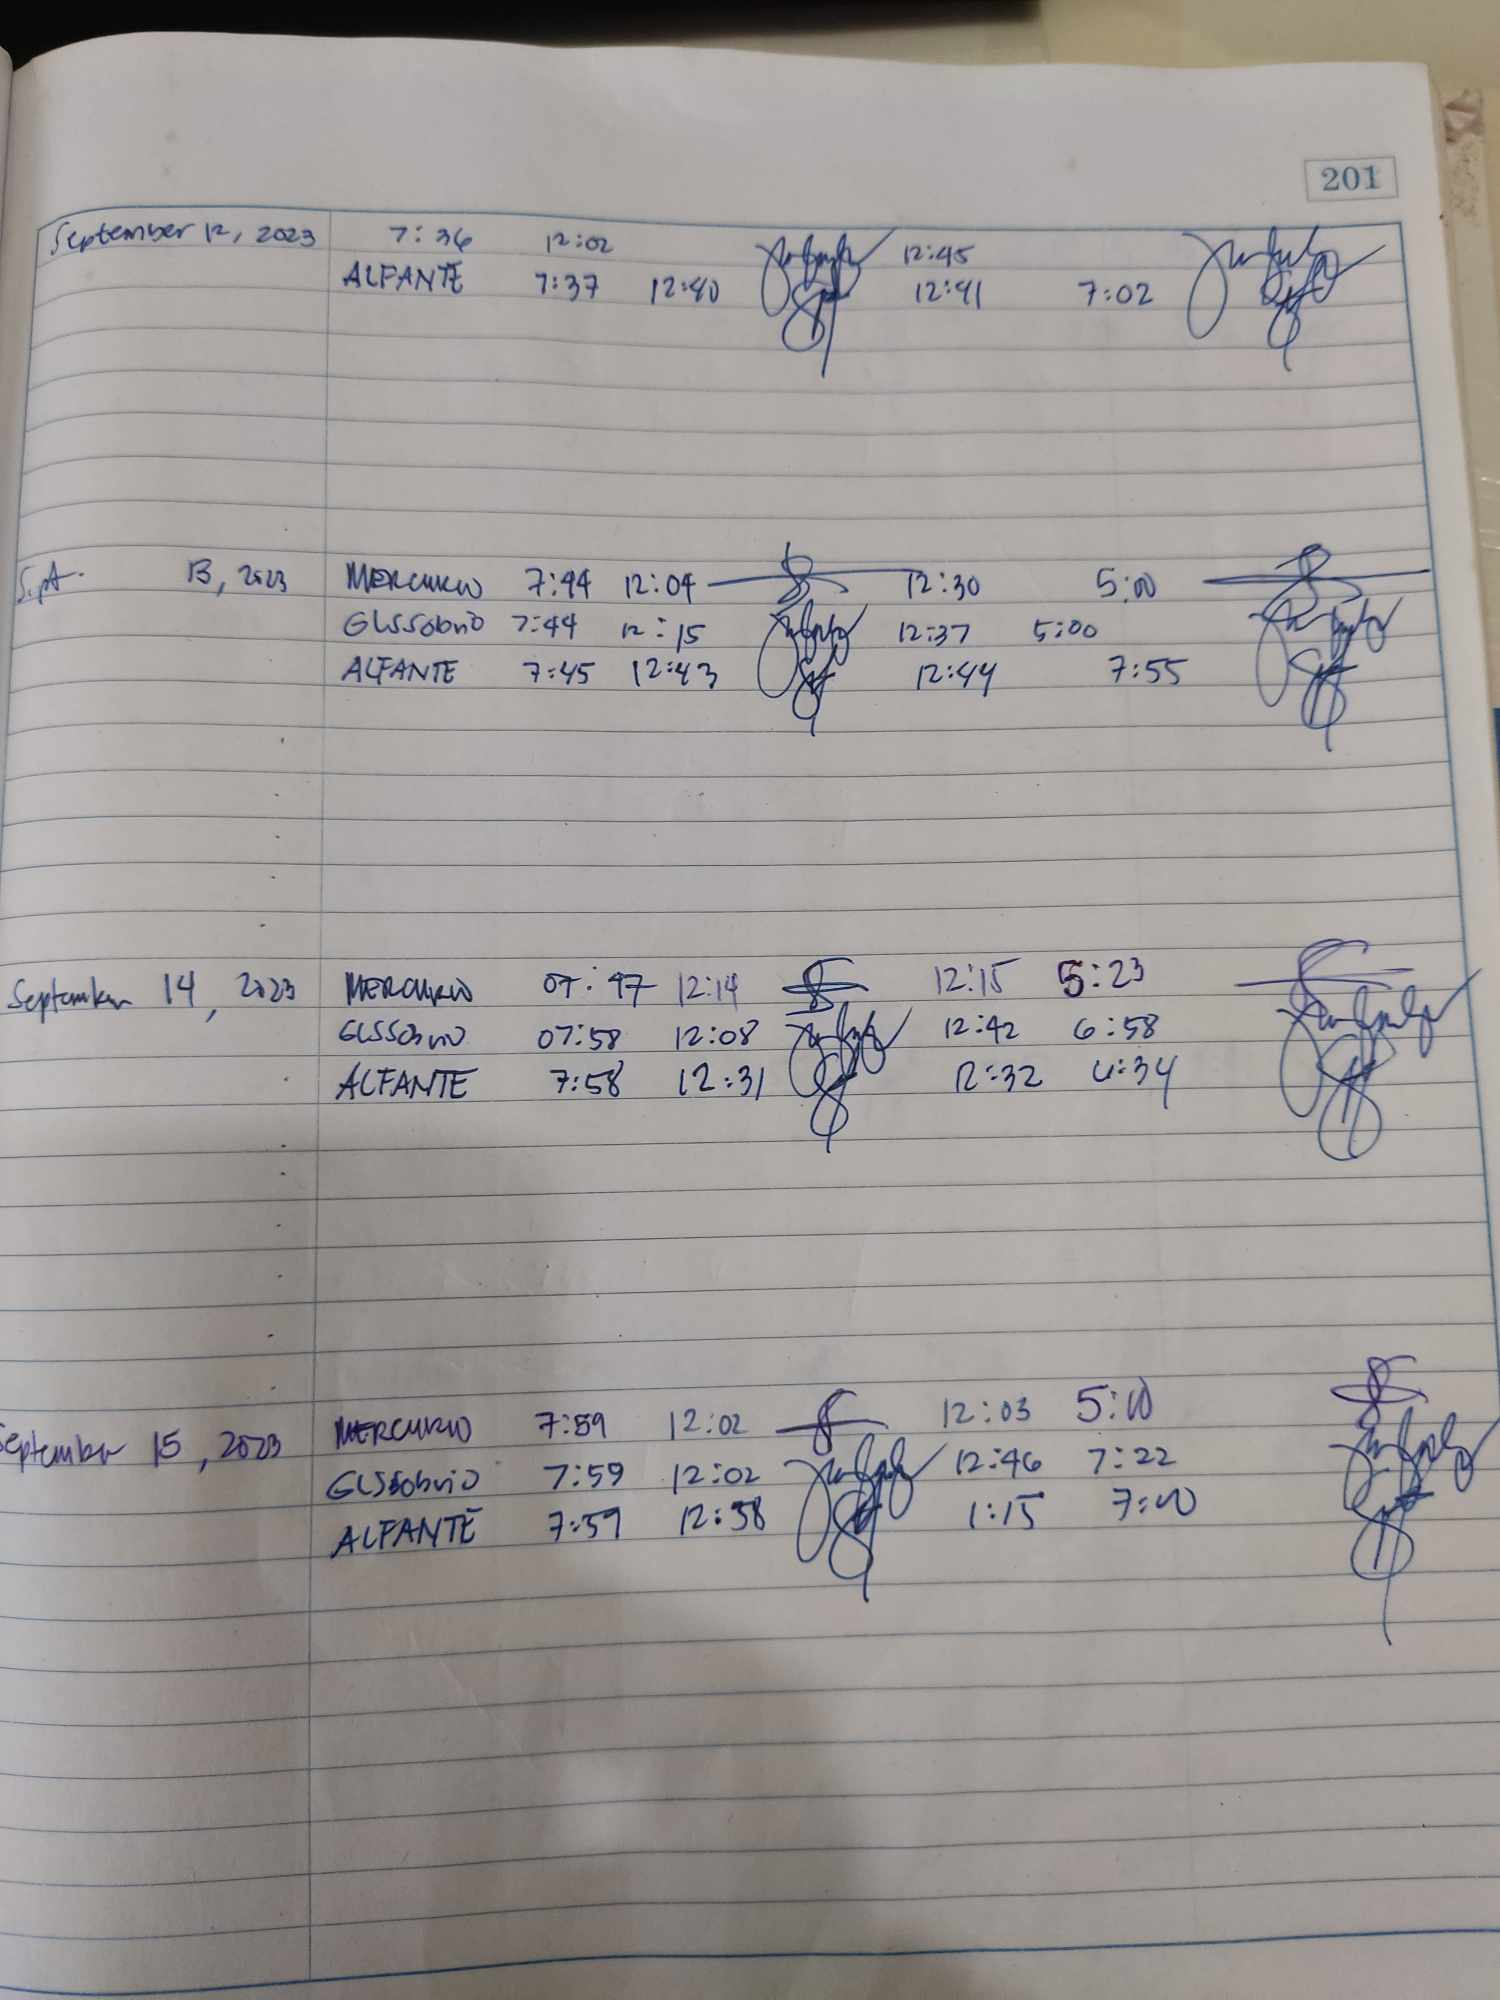 201
September 12, 2023 7:36 12:02 12:45
ALFANTE 7:37 12:40 12:41 7:02
Sept. 13, 2023 MERCURIO 7:44 12:04 12:30 5:00
GLSSobrio 7:44 12:15 12:37 5:00
ALFANTE 7:45 12:43 12:44 7:55
September 14, 2023 MERCURIO 07:47 12:14 12:15 5:23
GLSSobrio 07:58 12:08 12:42 6:58
ALFANTE 7:58 12:31 12:32 6:34
September 15, 2023 MERCURIO 7:59 12:02 12:03 5:10
GLSSobrio 7:59 12:02 12:46 7:22
ALFANTE 7:59 12:58 1:15 7:00